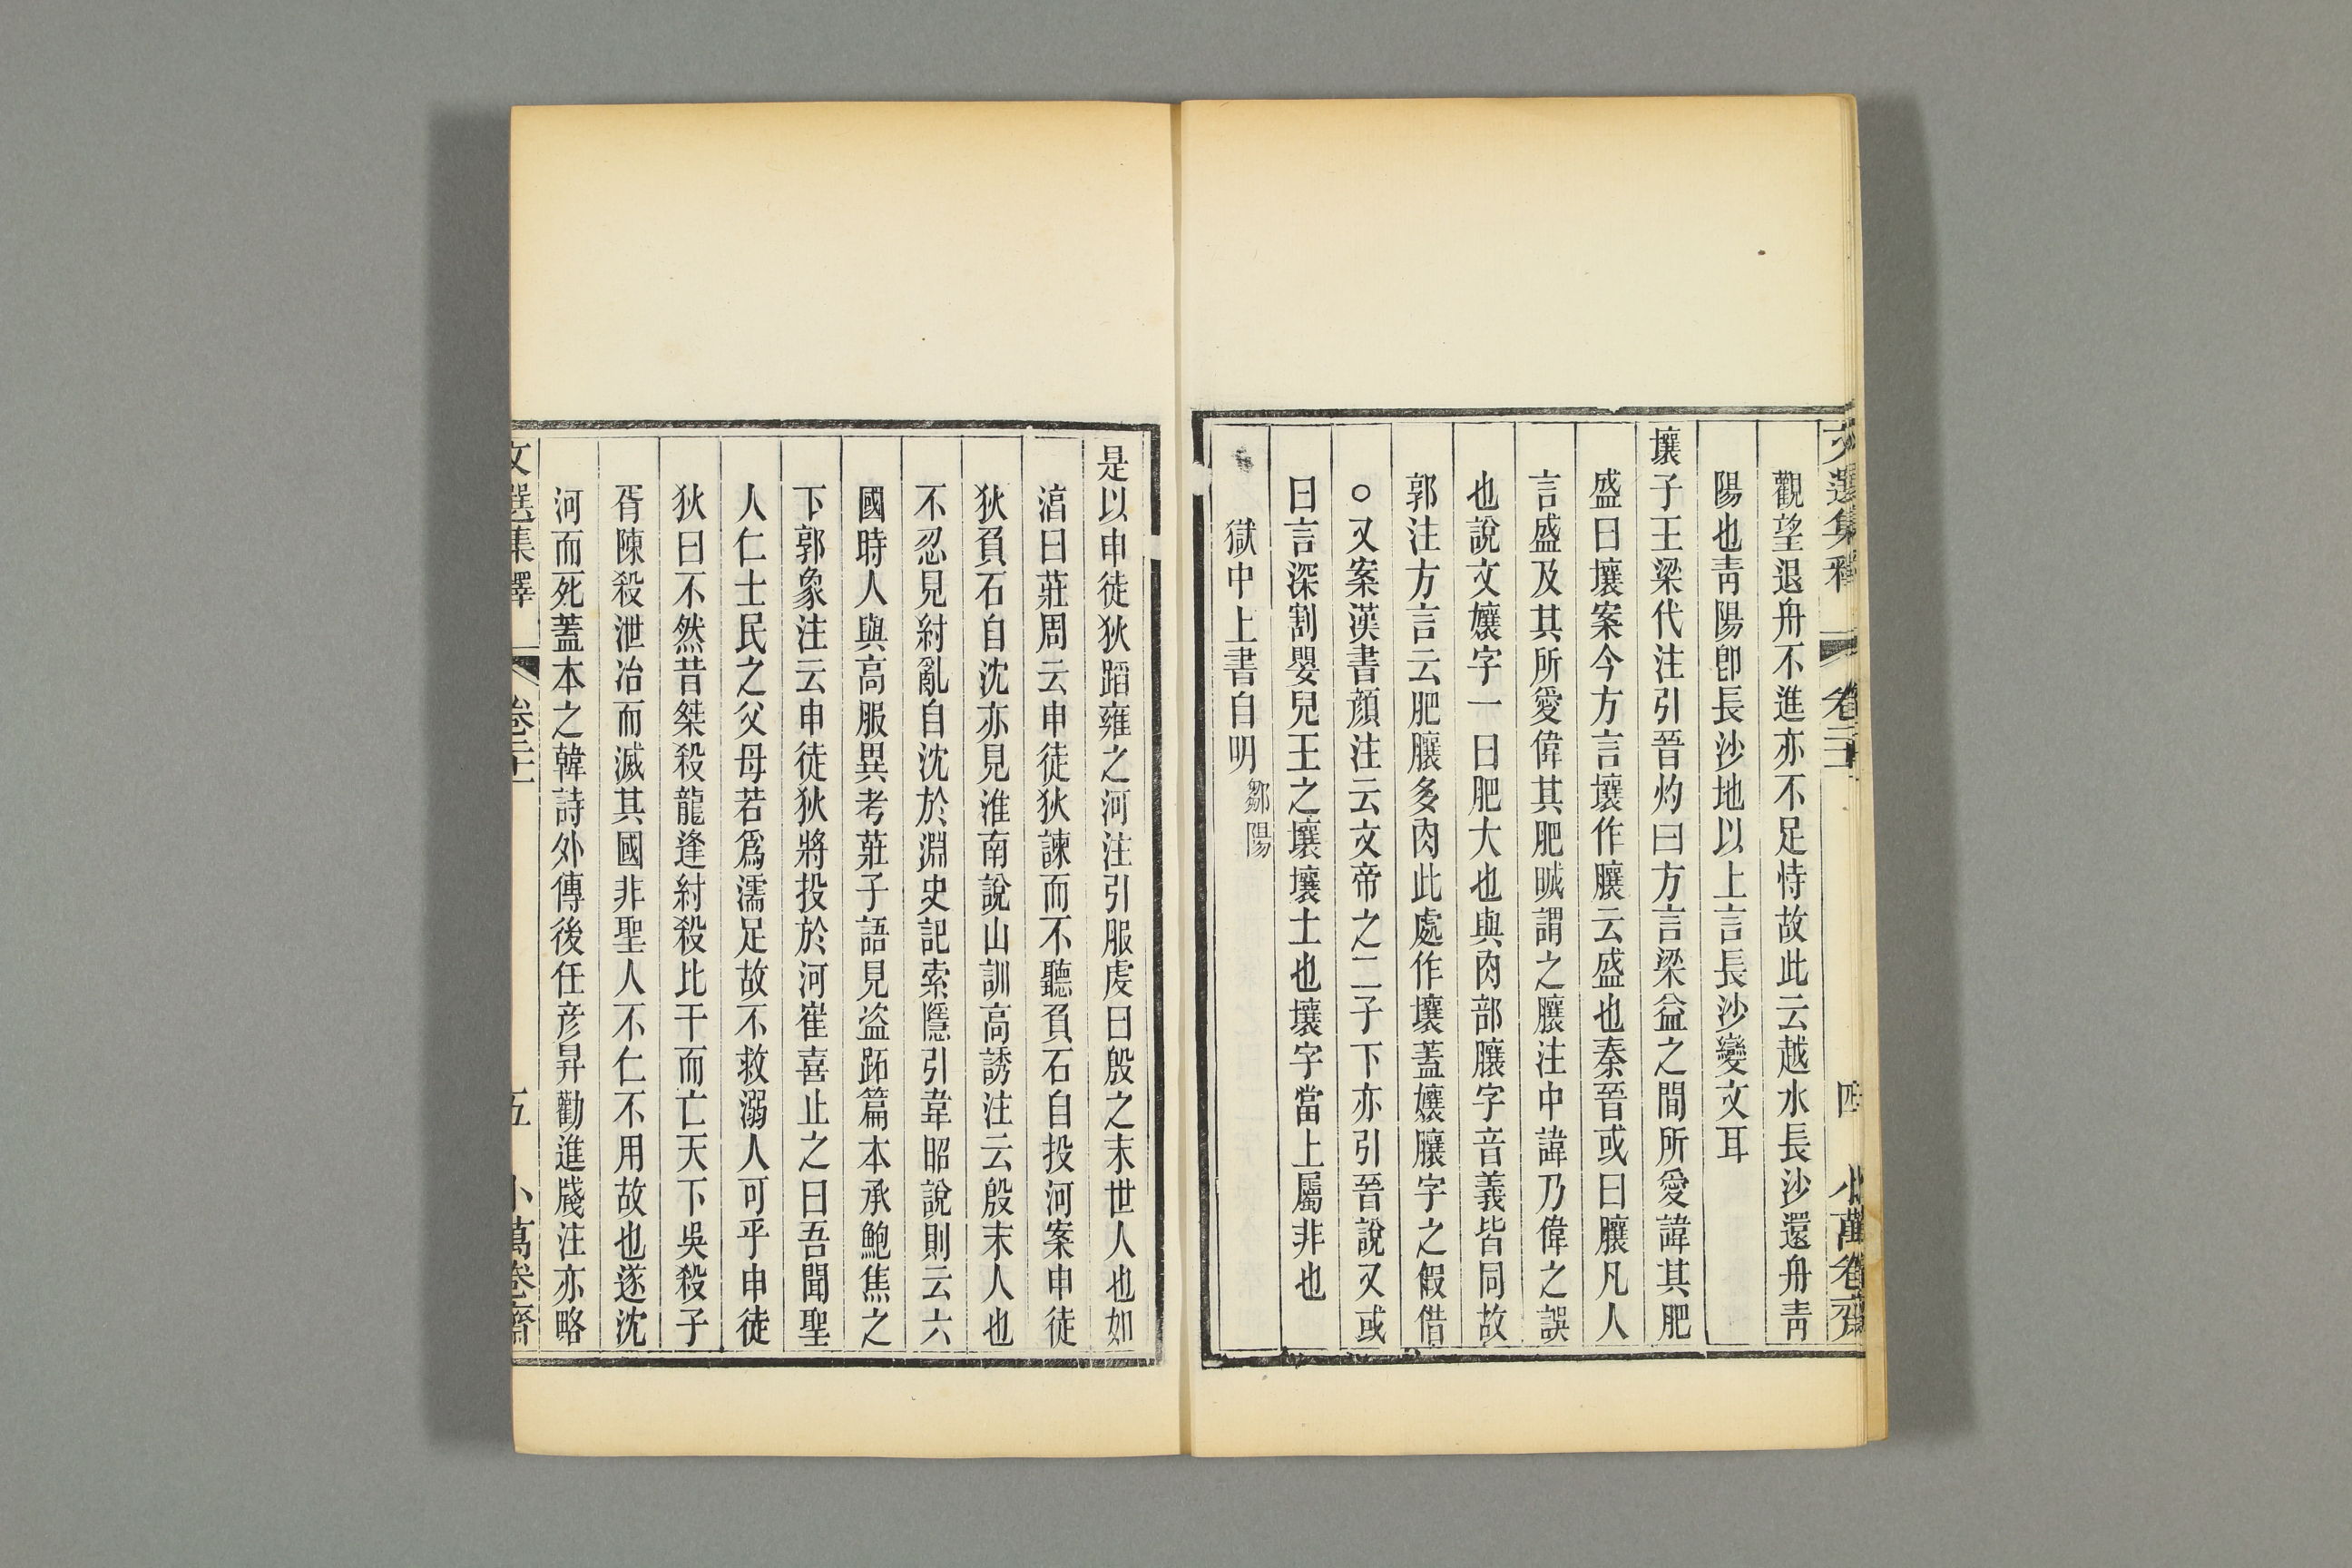 文選集釋 卷二十一 四 小萬卷齋
觀望退舟不進亦不足恃故此云越水長沙還舟靑
陽也靑陽卽長沙地以上言長沙變文耳
壤子王梁代注引晉灼曰方言梁益之間所愛諱其肥
盛曰壤案今方言壤作䑋云盛也秦晉或曰䑋凡人
言盛及其所愛偉其肥晠謂之䑋注中諱乃偉之誤
也說文孃字一曰肥大也與肉部䑋字音義皆同故
郭注方言云肥䑋多肉此處作壤蓋孃䑋字之假借
○又案漢書顏注云文帝之二子下亦引晉說又或
曰言深割嬰兒王之壤壤土也壤字當上屬非也
獄中上書自明 鄒陽
是以申徒狄蹈雍之河注引服虔曰殷之末世人也如
湻曰莊周云申徒狄諫而不聽負石自投河案申徒
狄負石自沈亦見淮南說山訓高誘注云殷末人也
不忍見紂亂自沈於淵史記索隱引韋昭說則云六
國時人與高服異考莊子語見盜跖篇本承鮑焦之
下郭象注云申徒狄將投於河崔喜止之曰吾聞聖
人仁士民之父母若爲濡足故不救溺人可乎申徒
狄曰不然昔桀殺龍逢紂殺比干而亡天下吳殺子
胥陳殺泄冶而滅其國非聖人不仁不用故也遂沈
河而死蓋本之韓詩外傳後任彦昇勸進牋注亦略
文選集釋 卷二十一 五 小萬卷齋